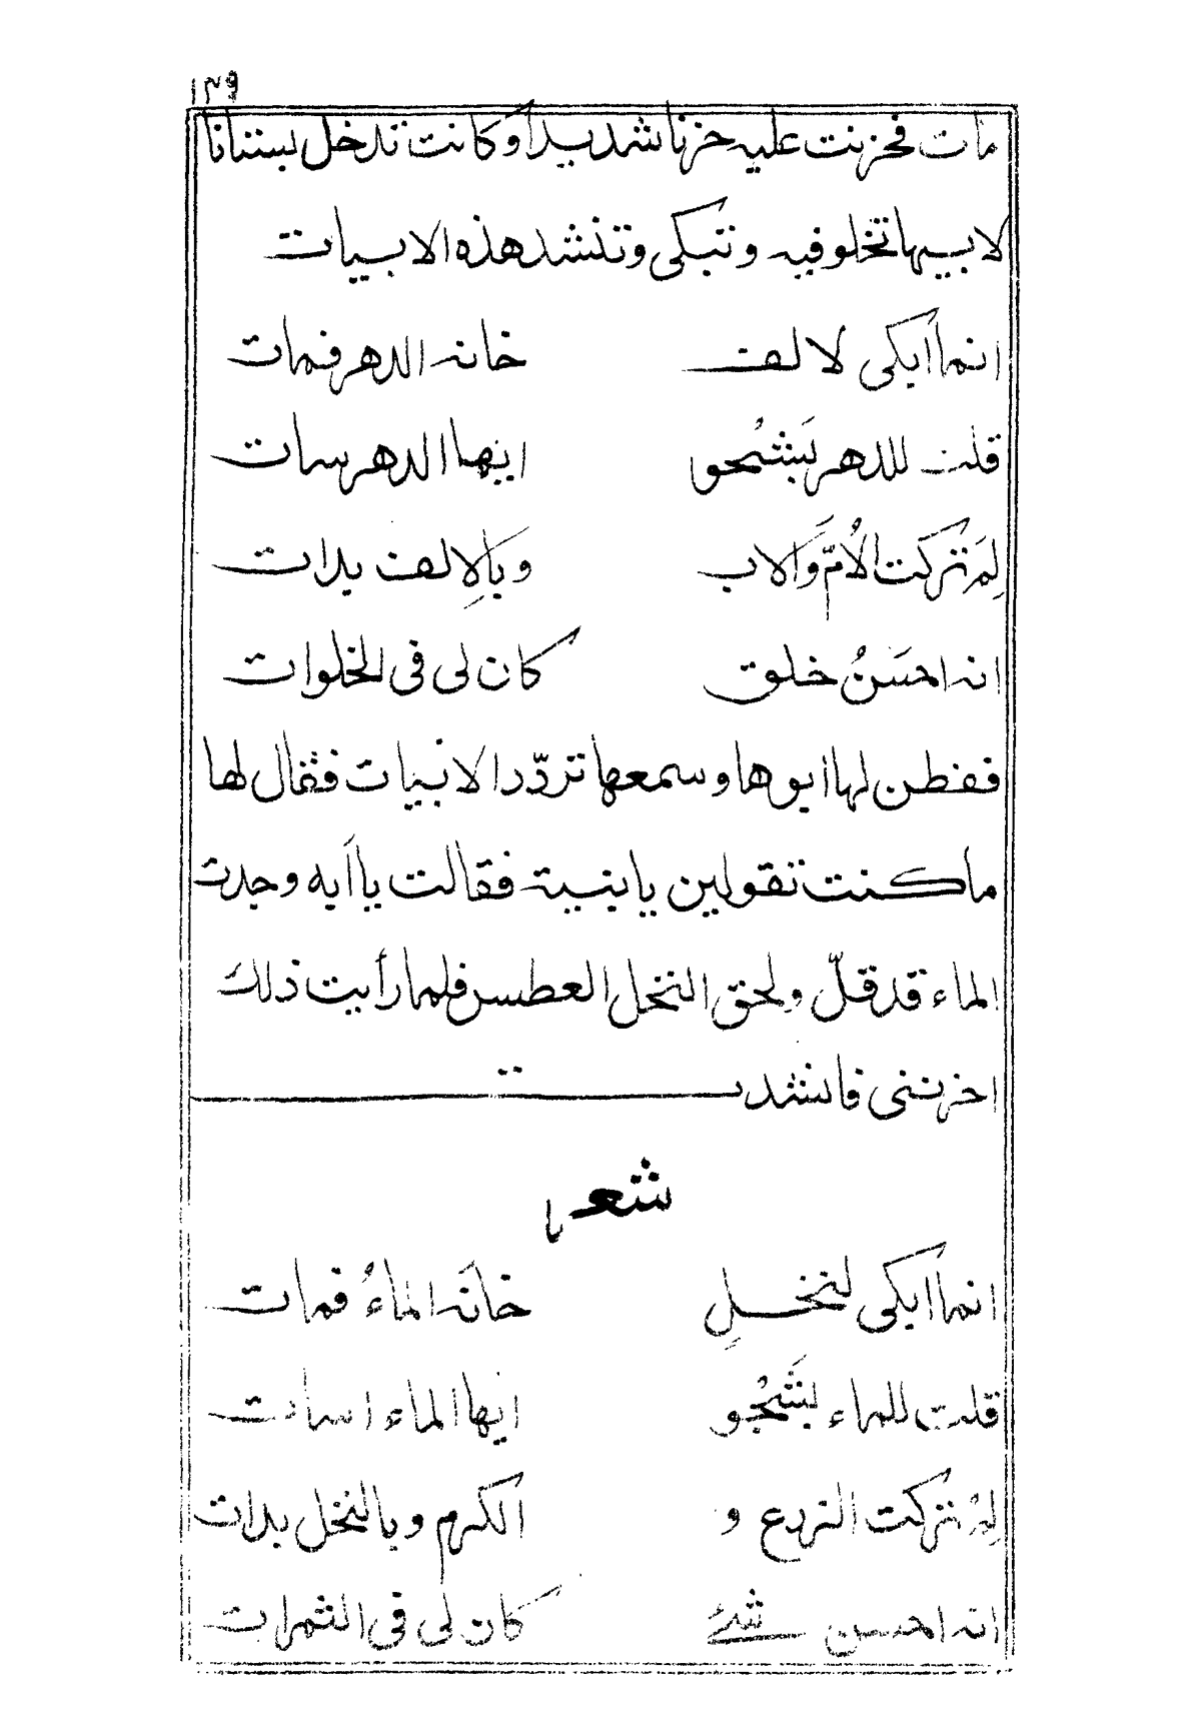 ١٣٩
مات فحزنت عليه حزنا شديدا وكانت تدخل بستانا
لابيها تخلو فيه وتبكى وتنشد هذه الابيات
انما أبكى لالف خانه الدهر فمات
قلت للدهر بَشجْو ايها الدهر سات
لِمَ تركت الأُمّ وَالاب وبالِالف بدات
انه احسَنُ خلق كان لى فى الخلوات
ففطن لها ابوها وسمعها تردّد الابيات فقال لها
ما كنت تقولين يا بنية فقالت يا أبه وجدت
الماء قد قلّ ولحق النخل العطس فلما رأيت ذلك
احزننى فانشدت
شعر
انما أبكى لنخلِ خانَه الماءُ فمات
قلت للماء بشَجْو ايها الماء اسات
لِمَ تركت الزرع و الكرم وبالنخل بدات
انه احسن شئ كان لى فى الثمرات